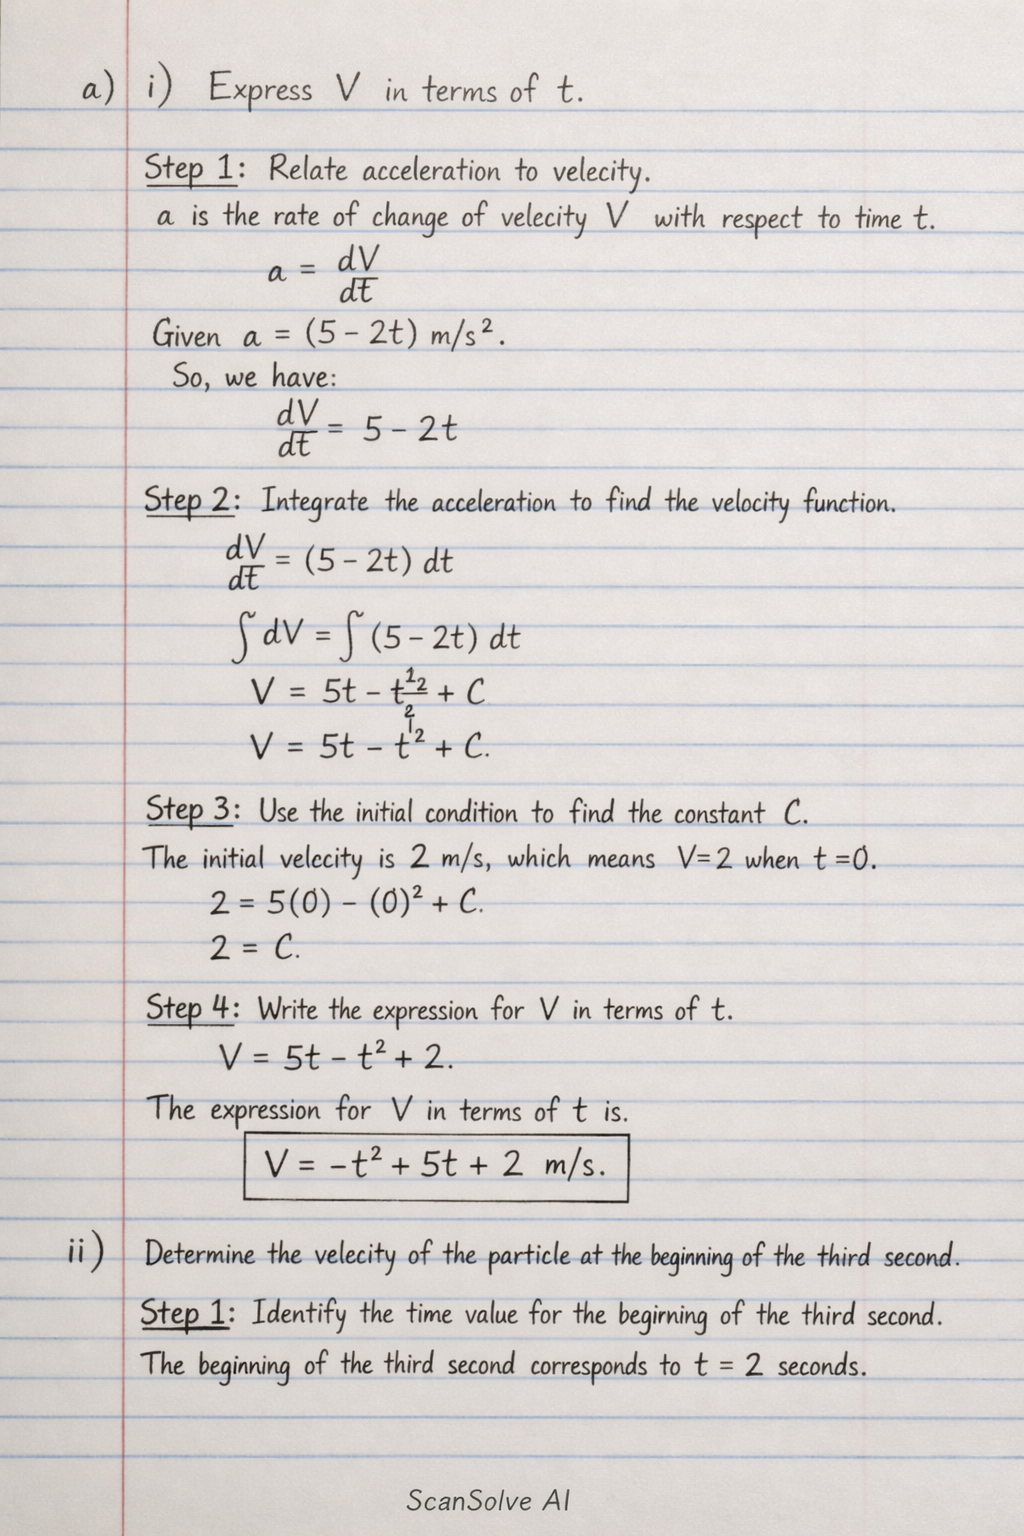 a) i) Express V in terms of t.
Step 1: Relate acceleration to velecity.
a is the rate of change of velecity V with respect to time t.
a = dV/dt
Given a = (5 - 2t) m/s².
So, we have:
dV/dt = 5 - 2t
Step 2: Integrate the acceleration to find the velocity function.
dV/dt = (5 - 2t) dt
∫ dV = ∫ (5 - 2t) dt
V = 5t - t¹²/2 + C
V = 5t - t² + C.
Step 3: Use the initial condition to find the constant C.
The initial velecity is 2 m/s, which means V=2 when t =0.
2 = 5(0) - (0)² + C.
2 = C.
Step 4: Write the expression for V in terms of t.
V = 5t - t² + 2.
The expression for V in terms of t is.
V = -t² + 5t + 2 m/s.
ii) Determine the velecity of the particle at the beginning of the third second.
Step 1: Identify the time value for the begirning of the third second.
The beginning of the third second corresponds to t = 2 seconds.
ScanSolve AI